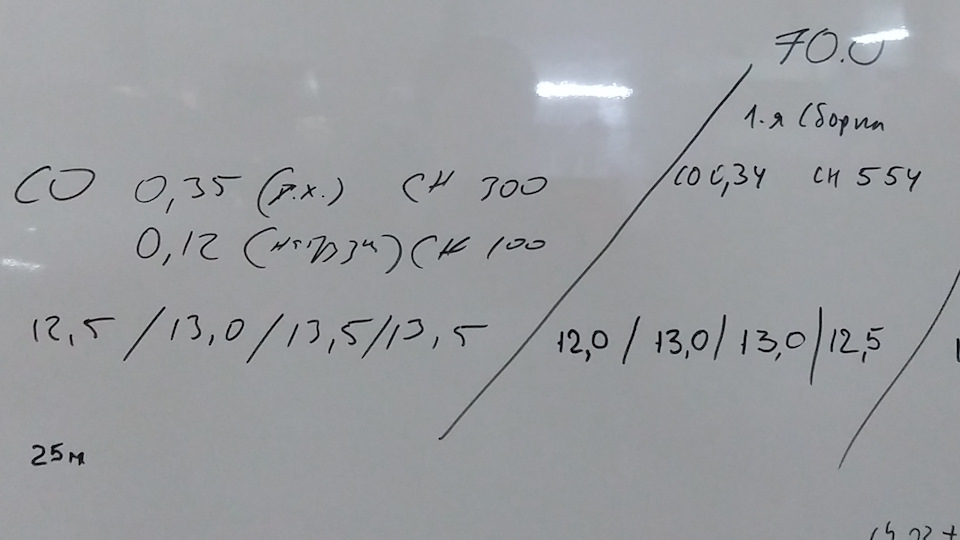 70.0
1.я Сборка
CO 0,35 (р.х.) CH 300
CO 0,34 CH 554
0,12 (нагрузк) CH 100
12,5 / 13,0 / 13,5 / 13,5
12,0 / 13,0 / 13,0 / 12,5
25м